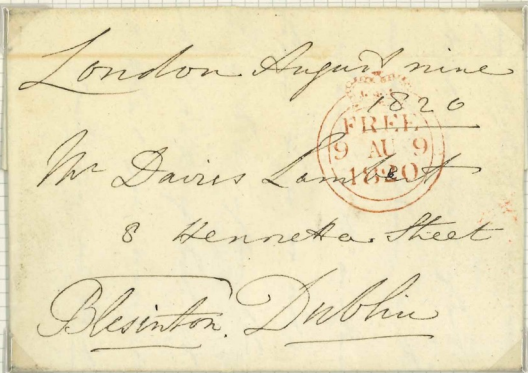 London August nine
1820
FREE
9 AU 9
1820
Mr Davies Lambert
8 Henrietta Street
Blesinton. Dublin